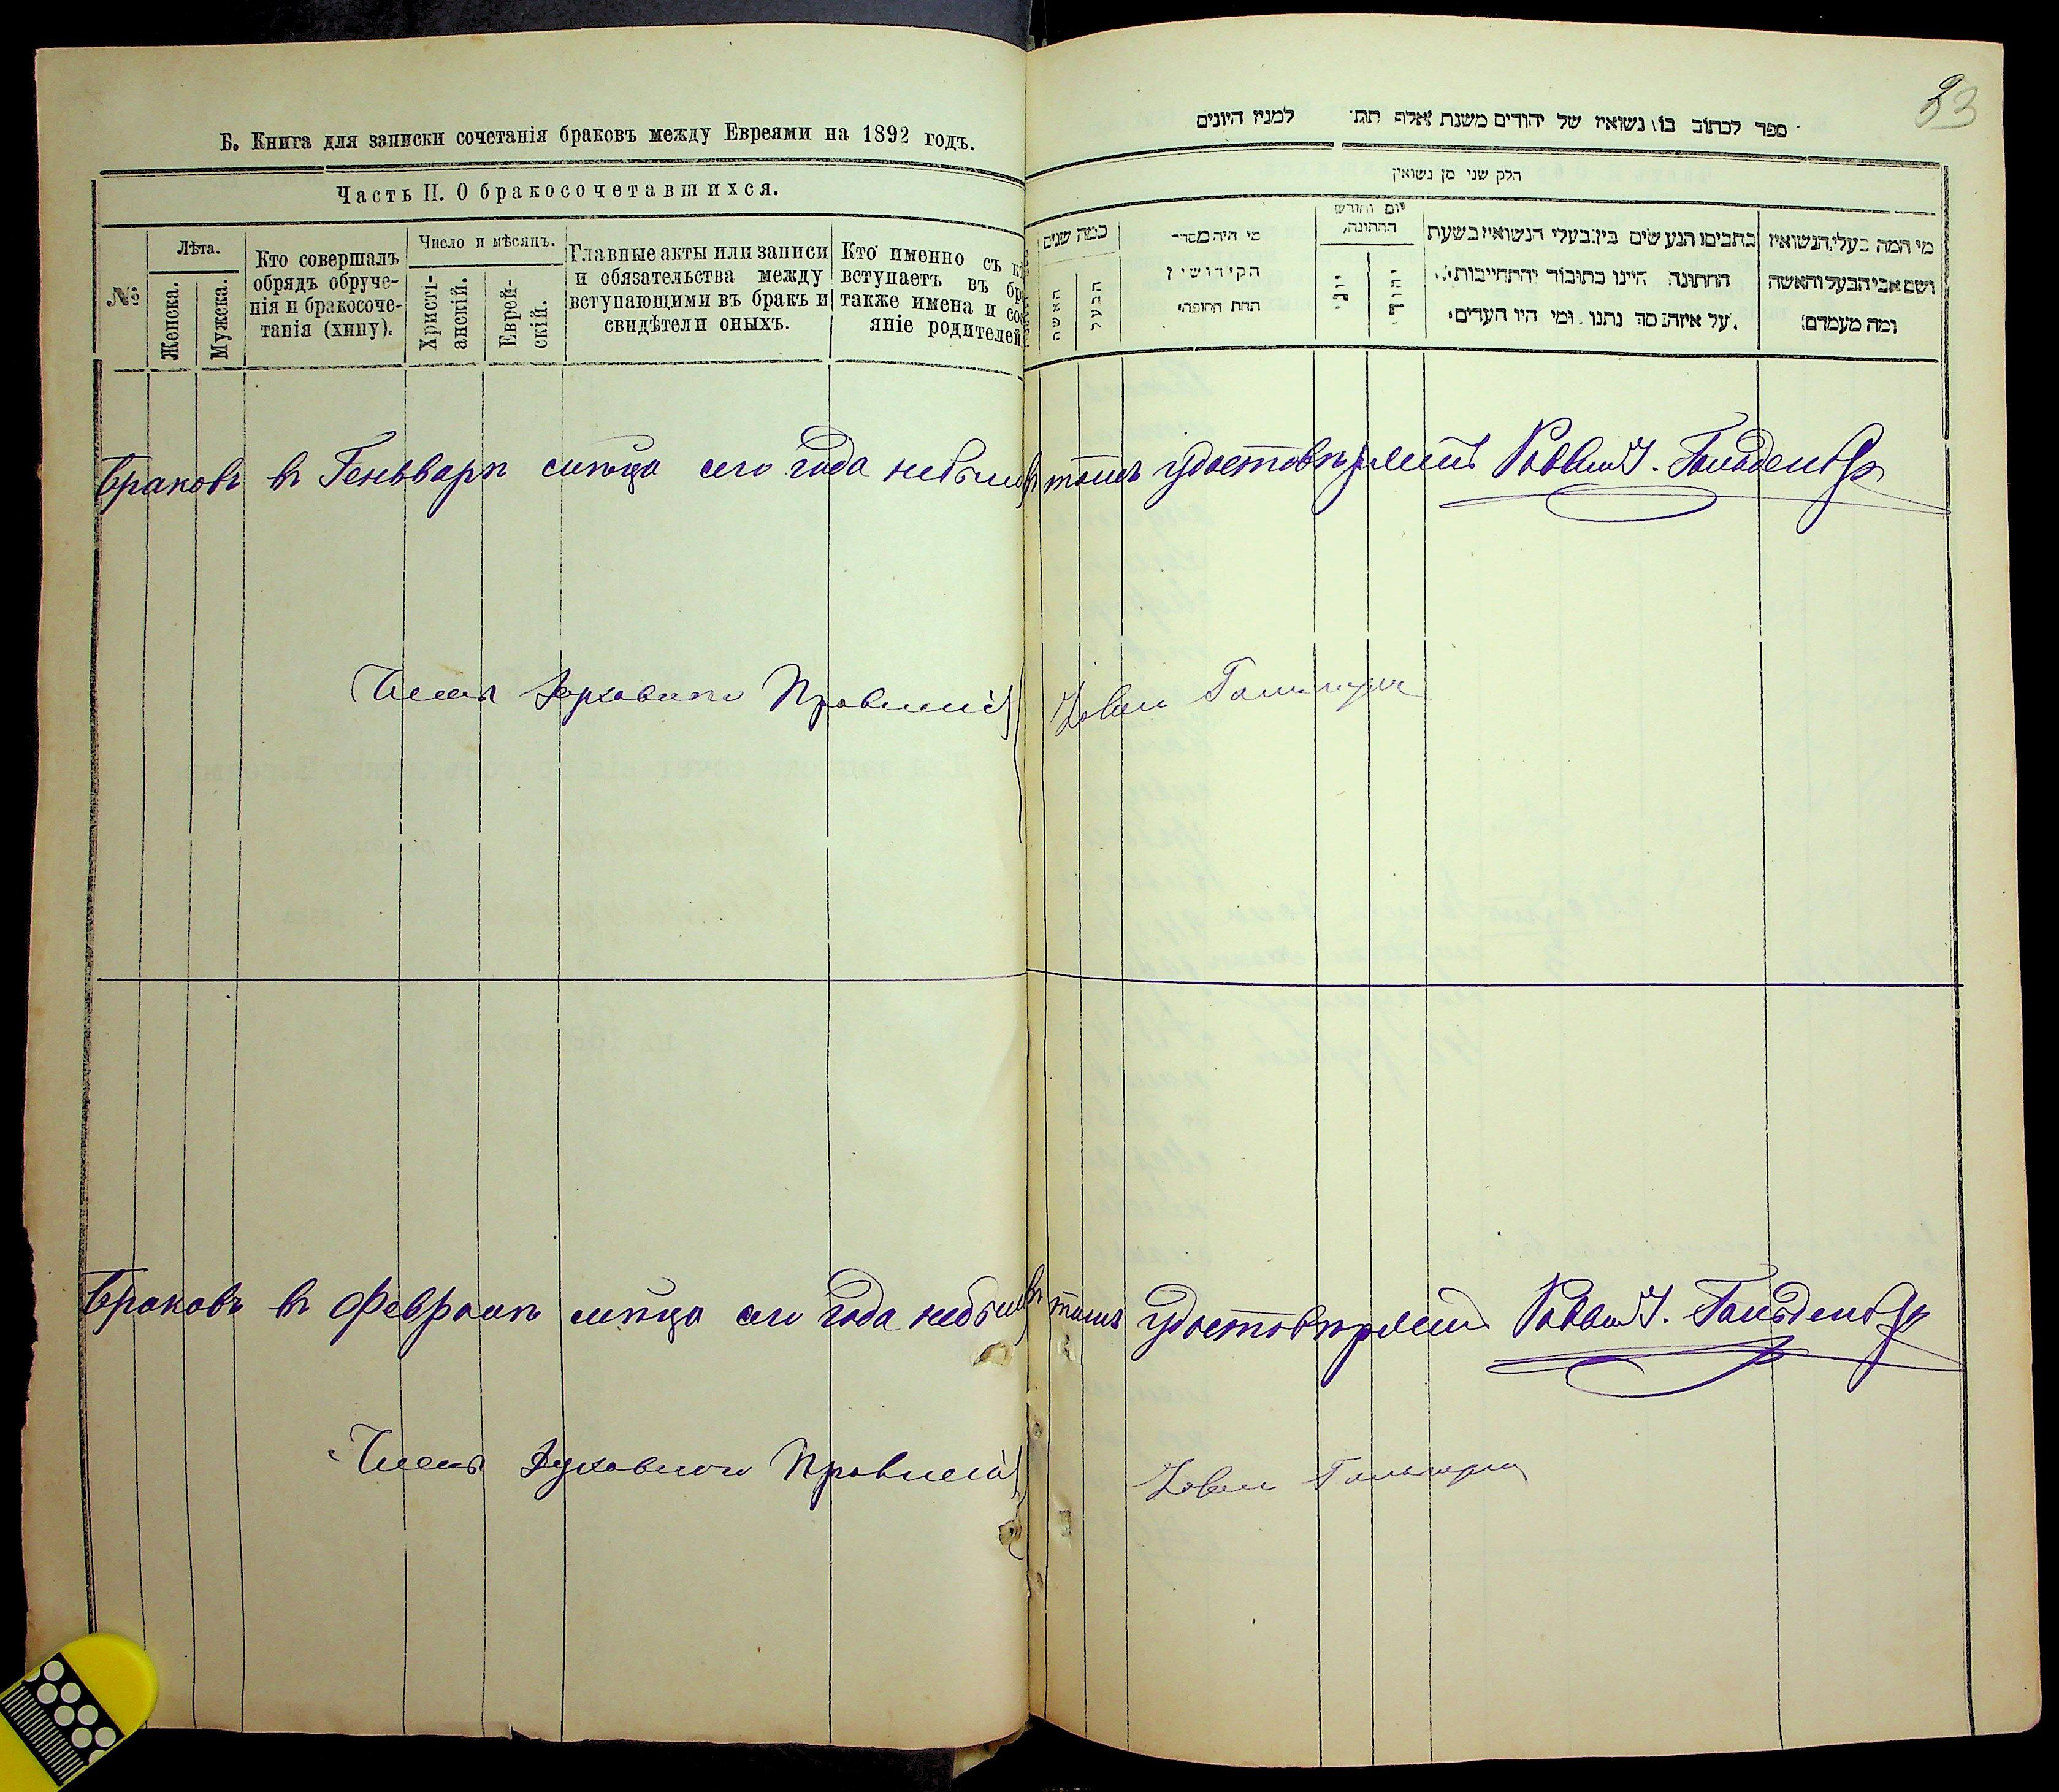 Б. Книга для записки сочетанія браковъ между Евреями на 1892 годъ.
Часть II. О бракосочетавшихся.
№
Лѣта.
Женска.
Мужска.
Кто совершалъ
обрядъ обруче-
нія и бракосоче-
танія (хипу).
Число и мѣсяцъ.
Христі-
анскій.
Еврей-
скій.
Главные акты или записи
и обязательства между
вступающими въ бракъ и
свидѣтели оныхъ.
Кто именно съ
вступаетъ въ
также имена и
яніе родителей
23
ספר לכתוב בו נשואין של יהודים משנת אלף תת למנין היונים
חלק שני מן נשואין
כמה שנים
האשה
הבעל
מי היה מסדר
הקידושין
תחת החופה
יום וחורש
החתונה
כתבים הנעשים בין בעלי הנשואין בשעת
החתונה היינו כתובו׳ והתחייבות
על איזה סך נתנו ומי היו העדים
מי המה בעלי הנשואין
ושם אבי הבעל והאשה
ומה מעמדם
Браковъ въ Геньварѣ мѣсѣца сего года небыло въ томъ удостовѣряетъ Раввинъ И. Гольденбер
Членъ Духовнаго Правленія
Браковъ въ Февралѣ мѣсѣца сего года небыло въ томъ удостовѣряетъ Раввинъ И. Гольденбер
Членъ Духовнаго Правленія